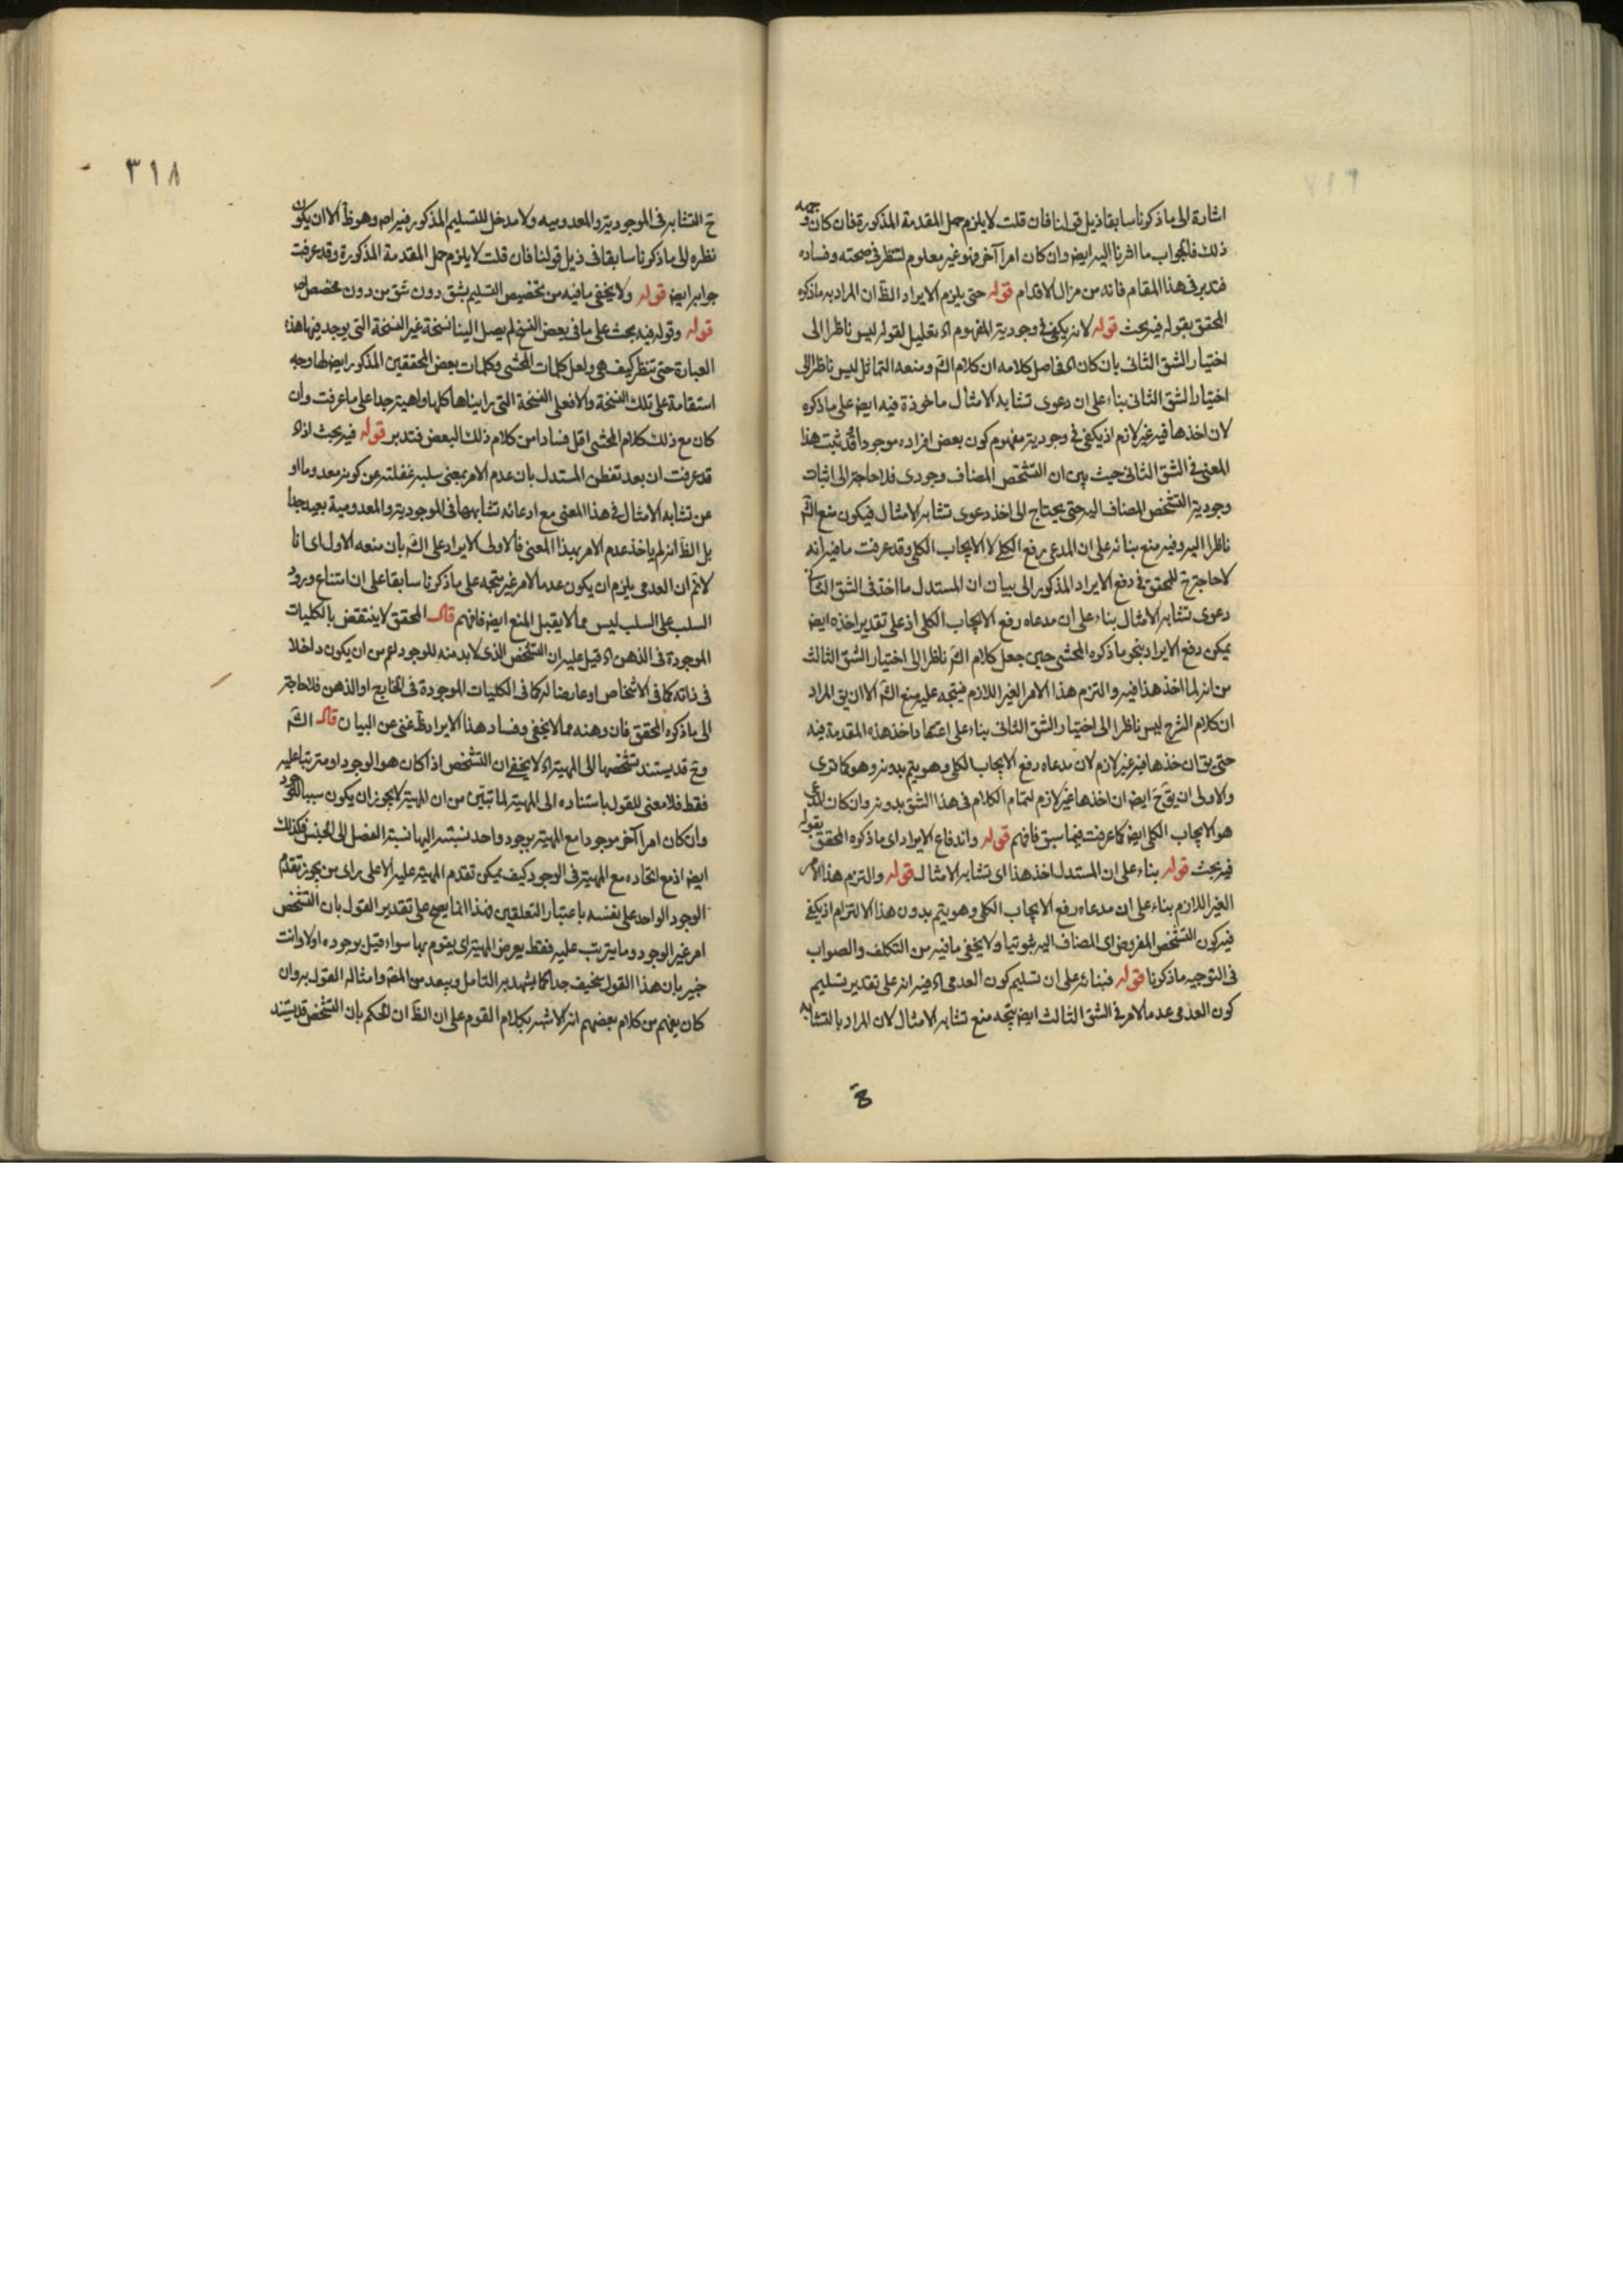 اشارة الى ما ذكرنا سابقا ذيل قولنا فان قلت لا يلزم حمل المقدمة المذكورة فان كان وجهه
ذلك فالجواب ما اشرنا اليه ايضا وان كان امرا آخر فهو غير معلوم لننظر في صحته وفساده
فتدبر في هذا المقام فانه من مزال الاقدام قوله حتى يلزم الايراد الظ ان المراد به ما ذكره
المحقق بقوله فيه بحث قوله لانه يكفي في وجودية المفهوم اه تعليل لقوله ليس ناظرا الى
اختيار الشق الثاني بان كان اه فاصل كلامه ان كلام الش ومنعه التماثل ليس ناظرا الى
اختيار الشق الثاني بناء على ان دعوى تشابه الامثال ماخوذة فيه ايضا على ما ذكره
لان اخذها فيه غير لازم اذ يكفي في وجودية مفهوم كون بعض افراده موجودا وقد ثبت هذا
المعنى في الشق الثاني حيث بين ان التشخص المضاف وجودى فلا حاجة الى اثبات
وجودية التشخص المضاف اليه حتى يحتاج الى اخذ دعوى تشابه الامثال فيكون منع الش
ناظرا اليه وفيه منع بنائه على ان المدعى رفع الكلى لا الايجاب الكلى وقد عرفت ما فيه انه
لا حاجة ح للمحقق في دفع الايراد المذكور الى بيان ان المستدل ما اخذ في الشق الثانى
دعوى تشابه الامثال بناء على ان مدعاه رفع الايجاب الكلى اذ على تقدير اخذه ايضا
يمكن دفع الايراد بنحو ما ذكره المحشى حين جعل كلام الش ناظرا الى اختيار الشق الثالث
من انه لما اخذ هذا فيه والتزم هذا الامر الغير اللازم فيتجه عليه منع الش الا ان يق المراد
ان كلام الشرح ليس ناظرا الى اختيار الشق الثانى بناء على اعتماد اخذ هذه المقدمة فيه
حتى يق ان اخذها فيه غير لازم لان مدعاه رفع الايجاب الكلى وهو يتم بدونه وهو كما ترى
والاولى ان يق ح ايضا ان اخذها غير لازم لتمام الكلام في هذا الشق بدونه وان كان المدعى
هو الايجاب الكلى ايضا كما عرفت فيما سبق فافهم قوله واندفاع الايراد اى ما ذكره المحقق بقوله
فيه بحث قوله بناء على ان المستدل اخذ هذا اى تشابه الامثال قوله والتزم هذا الامر
الغير اللازم بناء على ان مدعاه رفع الايجاب الكلى وهو يتم بدون هذا الالتزام اذ يكفي
فيه كون التشخص المفروض اى المضاف اليه ثبوتيا ولا يخفى ما فيه من التكلف والصواب
في التوجيه ما ذكرنا قوله فبنائه على ان تسليم كون العدمى اه فيه انه على تقدير تسليم
كون العدمى عدما لامر في الشق الثالث ايضا يتجه منع تشابه الامثال لان المراد بالتشابه
٣١٨
ح التشابه في الموجودية والمعدومية ولا مدخل للتسليم المذكور فيه اص وهو ظ الا ان يكون
نظره الى ما ذكرنا سابقا في ذيل قولنا فان قلت لا يلزم حمل المقدمة المذكورة وقد عرفت
جوابه ايضا قوله ولا يخفى ما فيه من تخصيص التسليم بشق دون شق من دون مخصص اص
قوله وقوله فيه بحث على ما في بعض النسخ لم يصل الينا نسخة غير النسخة التى يوجد فيها هذه
العبارة حتى ننظر كيف هى ولعل كلمات المحشى وكلمات بعض المحققين المذكور ايضا لها وجه
استقامة على تلك النسخة والا فعلى النسخة التى رايناها كلها واهية جدا على ما عرفت وان
كان مع ذلك كلام المحشى اقل فسادا من كلام ذلك البعض فتدبر قوله فيه بحث اذ اه
قد عرفت ان بعد تفطن المستدل بان عدم الامر بمعنى سلبه غفلته عن كونه معدوما او
عن تشابه الامثال في هذا المعنى مع ادعائه تشابهها في الموجودية والمعدومية بعيد جدا
بل الظ انه لم ياخذ عدم الامر بهذا المعنى فالاولى الايراد على الش بان منعه الاول اى انا
لانم ان العدمى يلزم ان يكون عدما لامر غير متجه على ما ذكرنا سابقا على ان امتناع ورود
السلب على السلب ليس مما لا يقبل المنع ايضا فافهم قال المحقق لا ينتقض بالكليات
الموجودة في الذهن اه قيل عليه ان التشخص الذى لا بد منه للوجود اعم من ان يكون داخلا
في ذاته كما في الاشخاص او عارضا له كما في الكليات الموجودة في الخارج او الذهن فلا حاجة
الى ما ذكره المحقق فان وهنه مما لا يخفى وفساد هذا الايراد ظ غنى عن البيان قال الش
وح قد يستند تشخصها الى المهية اه لا يخفى ان التشخص اذا كان هو الوجود او مترتبا عليه
فقط فلا معنى للقول باستناده الى المهية لما تبين من ان المهية لا يجوز ان يكون سببا للوجود
وان كان امرا آخر موجودا مع المهية بوجود واحد نسبته اليها نسبة الفصل الى الجنس فكذلك
ايضا اذ مع اتحاده مع المهية في الوجود كيف يمكن تقدم المهية عليه الا على راى من يجوز تقدم
الوجود الواحد على نفسه باعتبار التعلقين فهذا انما يصح على تقدير القول بان التشخص
امر غير الوجود وما يترتب عليه فقط يعرض المهية اى يقوم بها سواء قيل بوجوده اولا وانت
خبير بان هذا القول سخيف جدا كما يشهد به التامل ويبعد من المص وامثاله القول به وان
كان يفهم من كلام بعضهم انه الاشهر بكلام القوم على ان الظ ان الحكم بان التشخص قد يستند